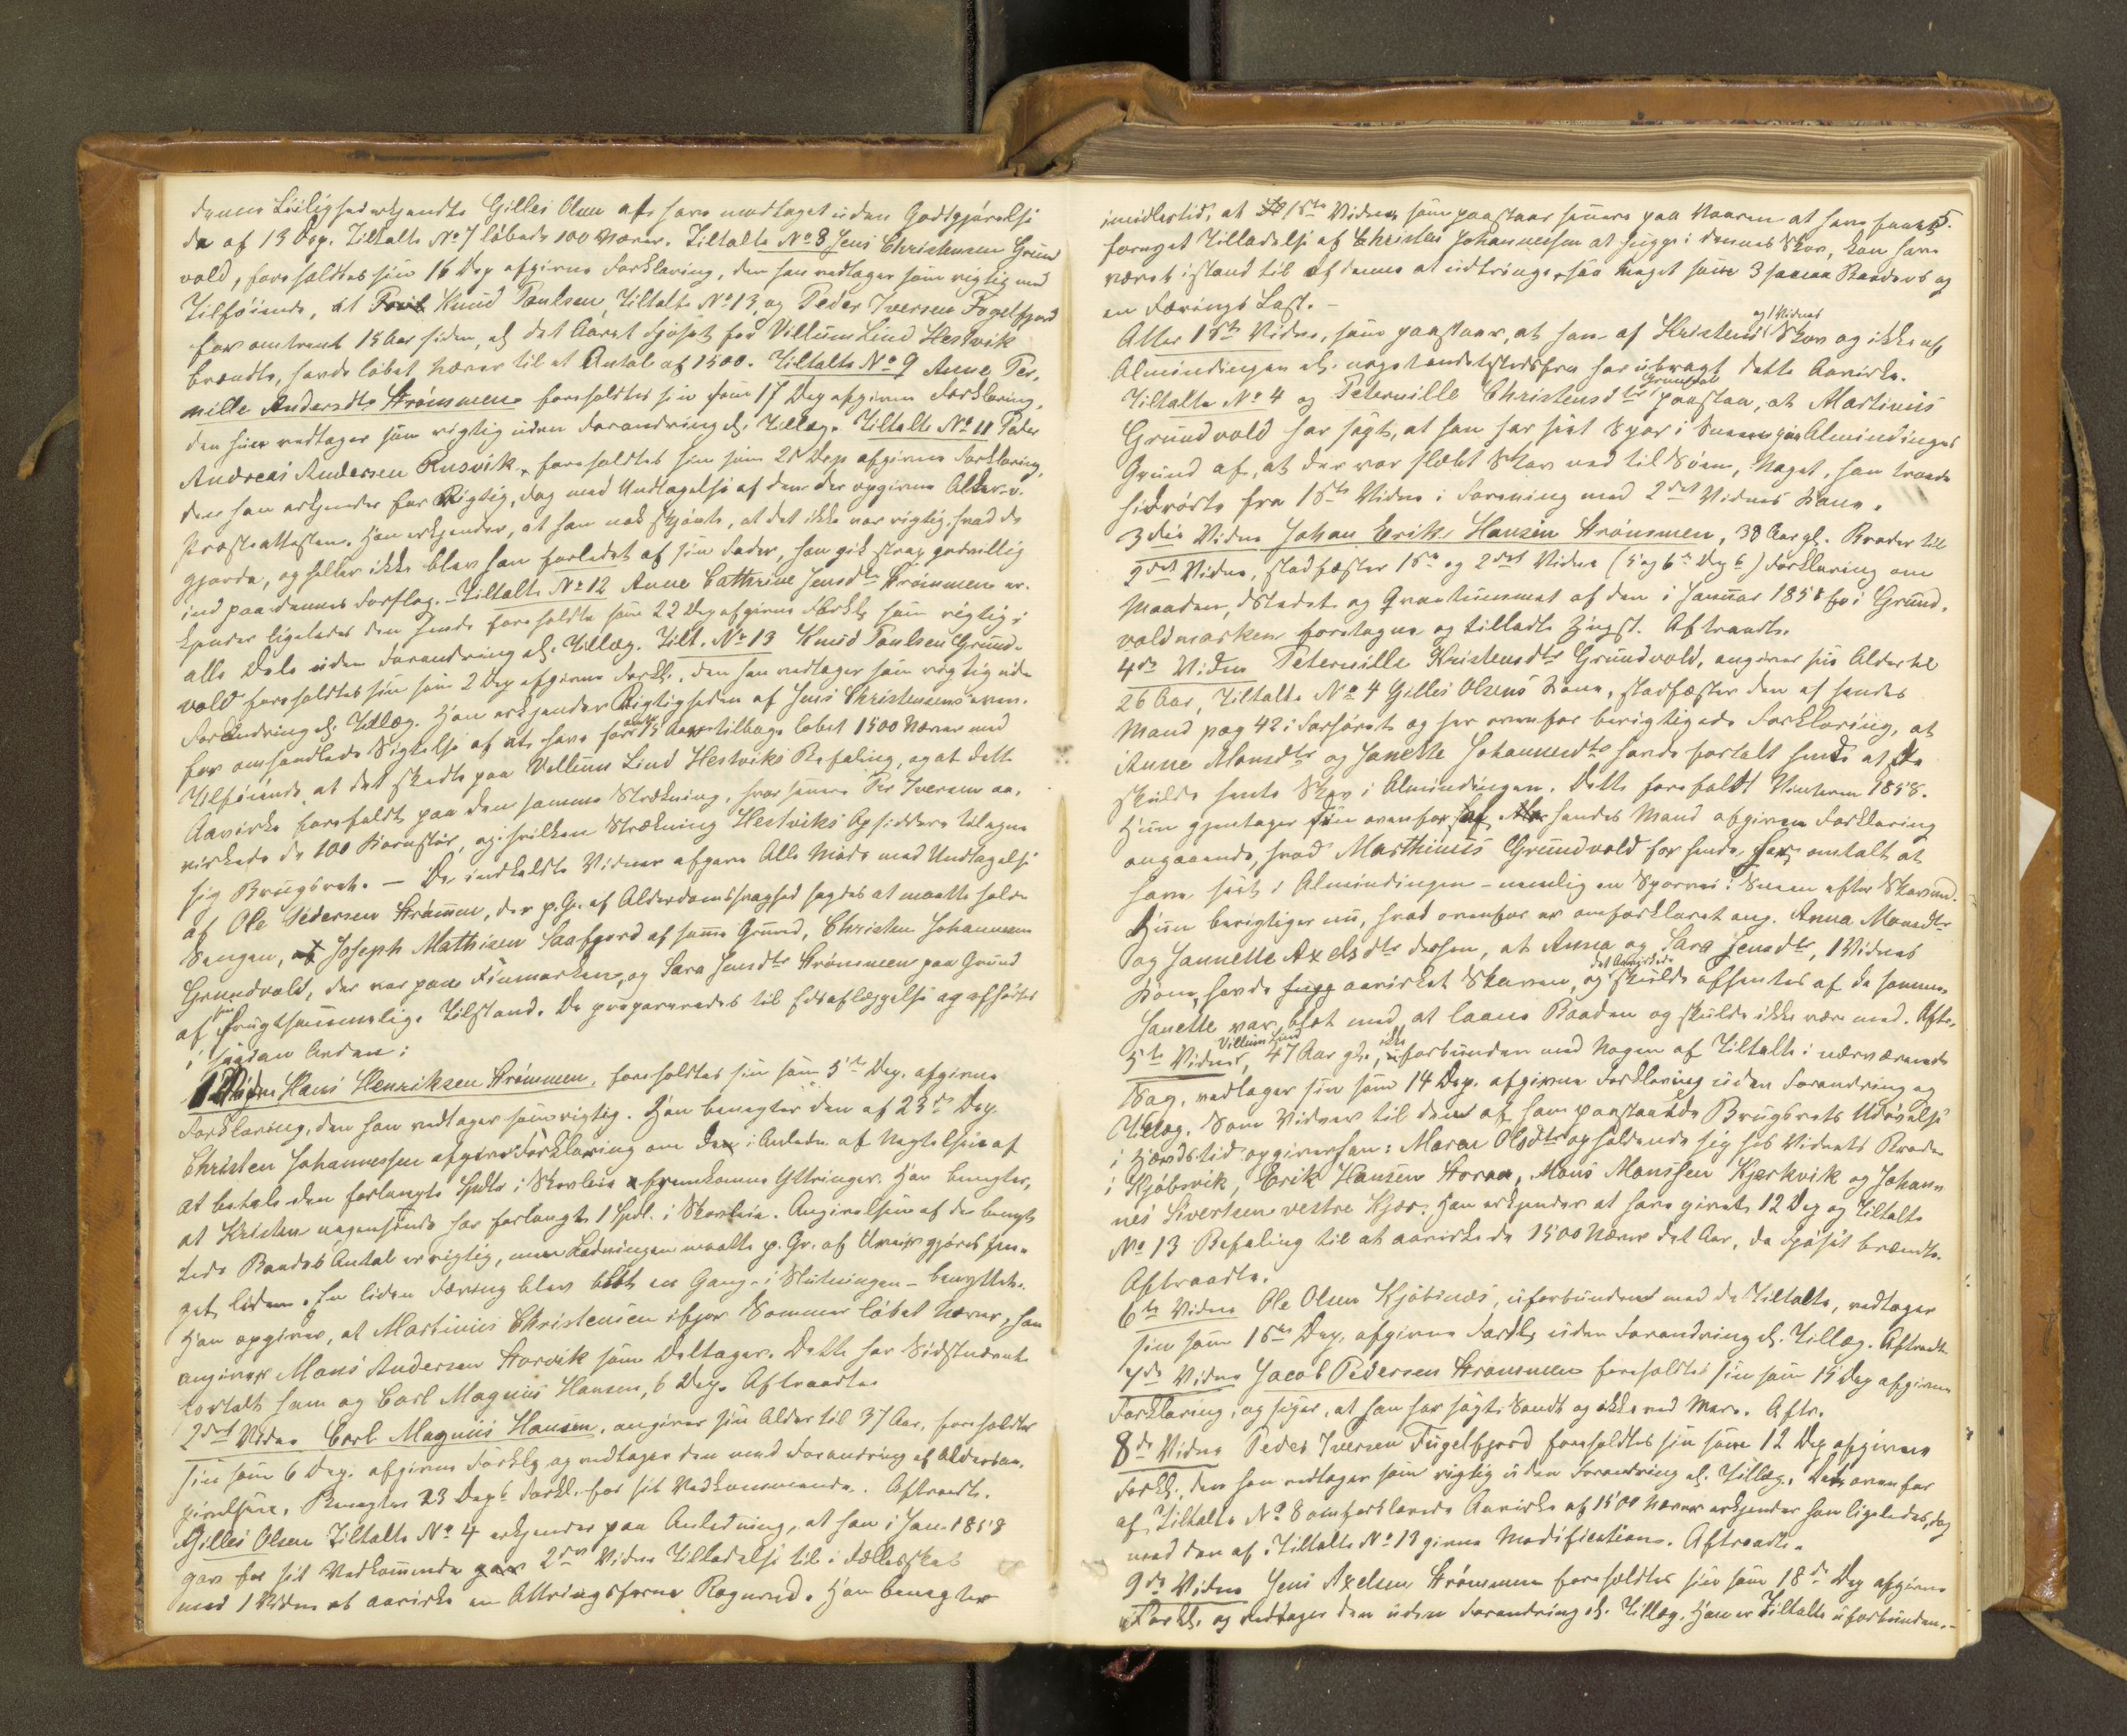 denne Leilighed erkjendte Gilles Olsen at have modtaget uden Godtgjørelse
da af 13 Dep. Tiltalte No 7 løbede 100 Næver. Tiltalte No 8 Jens Christensen Grund
vold, foreholdtes sin 16 Dep afgivne Forklaring, den han vedtager som rigtig med
Tilføiende, at Knud Paulsen, Tiltalte No 13, og Peder Iversen Fogelfjord
for omtrent 15 Aar siden, ell. det Aaret Fjøset hos Villum Lind Hestvik
brændte, havde løbet Næver til et Antal af 1500. Tiltalte No 9 Anne Per-
nille Andersdtr Strømmen foreholdtes sin som 17 Dep afgivne Forklaring,
den hun vedtager som rigtig uden Forandring ell. Tillæg. Tiltalte No 11 Peder
Andreas Andersen Rusvik, foreholdtes sin som 21 Dep afgivne Forklaring,
den han erkjender for Rigtig, dog med Undtagelse af den der opgivne Alder v.
Præsteattesten. Han erkjender, at han nok skjønte, at det ikke var rigtig, hvad de
gjorde, og heller ikke blev han forledet af sin Fader, han gik strax godvillig
ind paa dennes Forslag. - Tiltalte No 12 Anne Cathrine Jensdtr Strømmen er-
kjender ligeledes den hende foreholdte som 22 Dep afgivne Forklg som rigtig i
alle Dele uden Forandring ell. Tillæg. Tilt. No 13 Knud Paulsen Grund-
vold foreholdtes sin som 2 Dep afgivne Forkl., den han vedtager som rigtig uden
Forandring ell. Tillæg. Han erkjender Rigtigheden af Jens Christensens oven-
for omhandlede Sigtelse af at have for 15 Aar tilbage løbet 1500 Næver med
Tilføiende, at det skedte paa Vellum Lind Hestviks Befaling, og at dette
Aavirke forefaldt paa den samme Strækning, hvor senere Per Iversen aa-
virkede de 100 Kornstør, og hvilken Strækning Hestviks Opsiddere tilegne
sig Brugsret. — De indkaldte Vidner afgave Alle Møde med Undtagelse
af Ole Pedersen Strømmen, der p. Gr. af Alderdomssvaghed sagdes at maatte holde
Sengen, Joseph Mathisen Saafjord af samme Grund, Christen Johannesen
Grundvold, der var paa Finmarken, og Sara Jensdtr Strømmen paa Grund
af sin frugtsommelige Tilstand. De præpareredes til Edsaflæggelse og afhørtes
i saadan Orden:
1 Vidne Hans Henriksen Strømmen, foreholdtes sin som 5te Dep. afgivne
Forklaring, den han vedtager som rigtig. Han benegter den af 23de Dep
Christen Johannessen afgivne Forklaring om den i Anledn. af Negtelsen af
at betale den forlangte Spdlr i Skovleie fremkomne Yttringer. Han benegter,
at Kristen nogensinde har forlangt 1 Spdl. i Skovleie. Angivelsen af de benyt-
tede Baades Antal er rigtig, men Ladningen maatte p. Gr. af Uveir gjøres
get liden. En liden Færing blev blot en Gang - i Slutningen - benyttet.
Han opgiver, at Martinus Christensen ifjor Sommer løbet Næver, han
angiver Mons Andersen Storvik som Deltager. Dette har Sidstnævnte
fortalt ham og Carl Magnus Hansen, 6 Dep. Aftraadte
2det Vidne Carl Magnus Hansen, angiver sin Alder til 37 Aar, foreholdtes
sin som 6 Dep. afgivne Forklg og vedtager den med Forandring af Aldersan-
givelsen. Benegter 23 Deps Forkl. for sit Vedkommende. Aftraadte.
Gilles Olsen Tiltalte No 4 erkjender paa Anledning, at han i Jan. 1858
gav for sit Vedkommende 2det Vidne Tilladelse til i Fællesskab
med 1 Vidne at aavirke en Ottringsførne Rognved. Han benegter
5.
imidlertid, at 1ste Vidne som paastaar senere paa Vaaren at have faaet
fornyet Tilladelse af Christen Johannessen at hugge i dennes Skov, kan have
været istand til af denne at udbringe saa meget som 3 Baadens og
en Færings Last. -
Atter 1ste Vidne, som paastaar, at han af Kristens og 1 Vidnes Skov og ikke af
Almindingen ell. noget andetstedsfra har udbragt dette Aavirke.
Tiltalte No 4 og Peternille Christensdtr Grundvol paastaa, at Martinus
Grundvold har sagt, at han har seet Spor i Sneen paa Almindingens
Grund af, at der var slæbt Skov ned til Søen, Noget, han troede
hidrørte fra 1ste Vidne i Forening med 2det Vidnes Kone.
3die Vidne Johan Erik Hansen Strømmen, 38 Aar gl. Broder til
2det Vidne, stadfæster 1ste og 2det Vidnes (5 og 6te Deps) Forklaring om
Maaden, Stedet og Qvantummet af den i Januar 1858 i Grund-
voldmarken foretagne og tilladte Hugst. Aftraadte.
4de Vidne Peternille Kristensdtr Grundvold, angiver sin Alder til
26 Aar, Tiltalte No 4 Gilles Olsens Kone, stadfæster den af hendes
Mand pag 42 i Forhøret og her ovenfor berigtigede Forklaring, at
Anne Monsdtr og Janette Johannesdtr havde fortalt hende at de
skulde hente Skov i Almindingen. Dette forefaldt Vinteren 1858.
Hun gjentager sin ovenfor af hendes Mand afgiven Forklaring
angaaende, hvad Marthinus Grundvold for hende har omtalt at
have seet i Almindingen - nemlig en Sporvei i Sneen efter Skovved.
Hun berigtiger nu, hvad ovenfor er omforklaret ang. Anna Monsdtr
og Jannette Axelsdtr derhen, at Anna og Sara Jensdtr, 1 Vidnes
Kone, havde aavirket Skoven, og det Aavirkede skulde afhentes af de samme.
Janette var blot med at laane Baaden og skulde ikke være med. Aftr.
5te Vidne Villum Lind, 47 Aar gl., ikke forbunden med Nogen af Tiltalte i nærværende
Sag, vedtager sin som 14 Dep. afgivne Forklaring uden Forandring og
Tillæg. Som Vidner til den af ham paastaaede Brugsrets Udøvelse
i Hævdstid opgiver han: Maren Olsdtr opholdende sig hos Vidnets Broder
i Kjøbsvik, Erik Hansen Storaa, Mons Monssen Kjerkvik og Johan-
nes Sivertsen vestre Kjær. Han erkjender at have givet 12 Dep og Tiltalte
No 13 Befaling til at aavirke de 1500 Næver det Aar, da Fjøset brændte.
Aftraadte.
6te Vidne Ole Olsen Kjøbsnæs, uforbunden med de Tiltalte, vedtager
sin som 15de Dep. afgivne Forklg uden Forandring ell. Tillæg. Aftraadte
7de Vidne Jacob Pedersen Strømmen foreholdtes sin som 15 Dep afgivne
Forklaring, og siger, at han har sagt Sandt og ikke ved Mere. Aftr.
8de Vidne Peder Iversen Fugelfjord foreholdtes sin som 12 Dep afgivne
Forkl., den han vedtager som rigtig uden Forandring ell. Tillæg. Det ovenfor
af Tiltalte No 8 omforklarede Aavirke af 1500 Næver erkjender han ligeledes, dog
med den af Tiltalte No 13 givne Modification. Aftraadte.
9de Vidne Jens Axelsen Strømmen foreholdtes sin som 18de Dep afgivne
Forkl. og vedtager den uden Forandring ell. Tillæg. Han er Tiltalte uforbunden.-